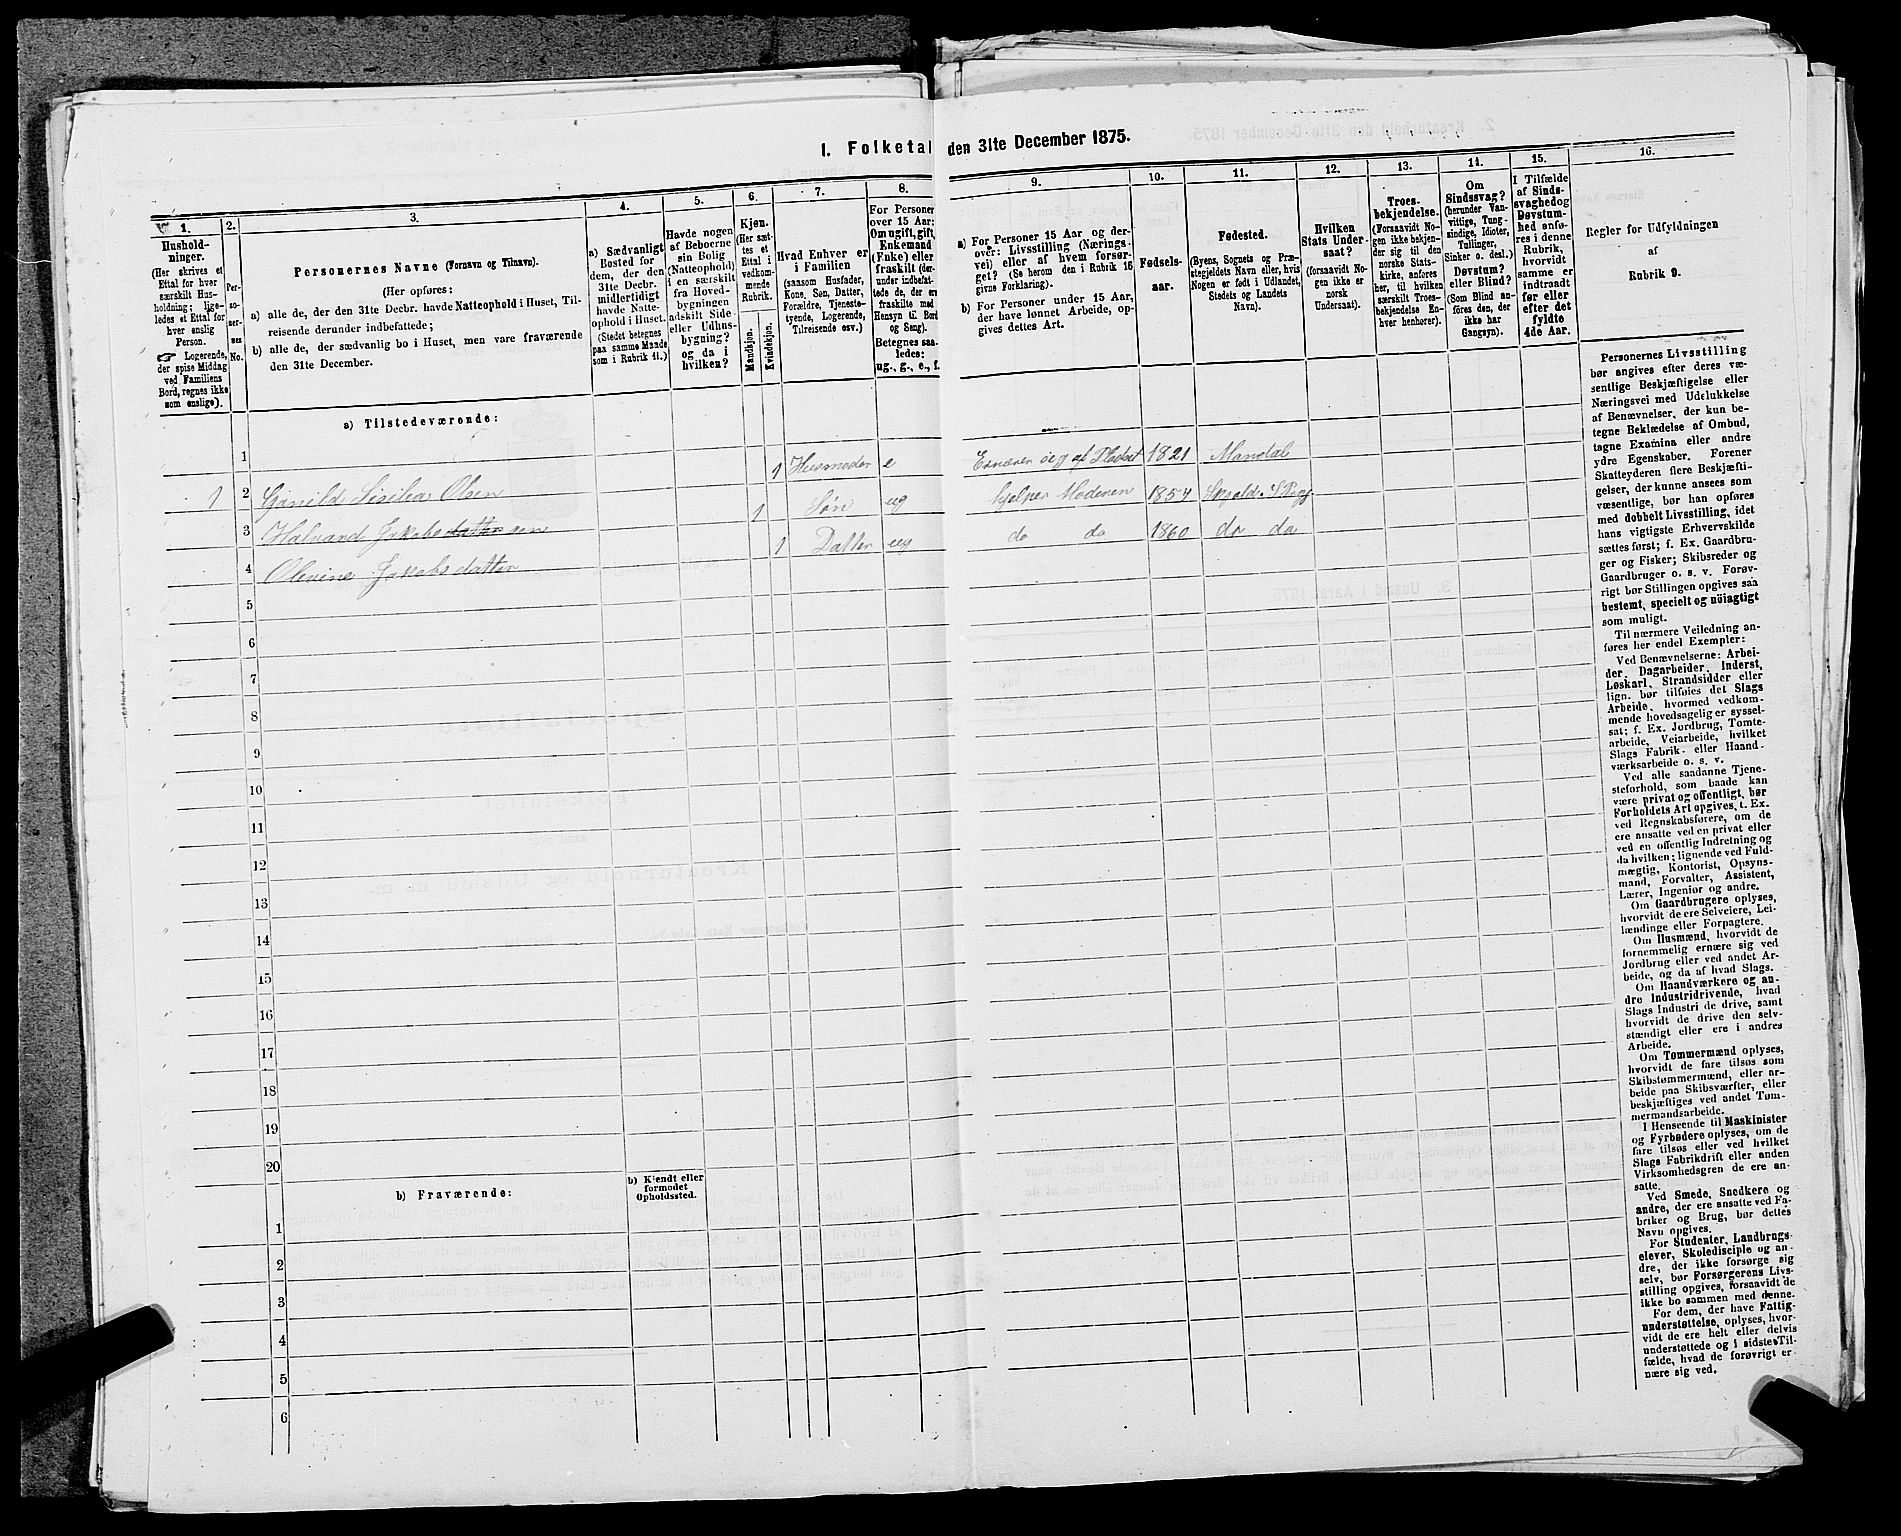 1. Folketal den 31te December 1875.
1. 2. 3. 4. 5. 6. 7. 8. 9. 10. 11. 12. 13. 14. 15. 16.
Hushold-
ninger.
(Her skrives et
Ettal for hver
særskilt Hus-
holdning; lige-
ledes et Ettal for
hver enslig
Person.
☞ Logerende,
der spise Middag
ved Familiens
Bord, regnes ikke
som enslige).
Per-
so-
ner-
nes
No.
Personernes Navne (Fornavn og Tilnavn).
(Her opføres:
a) alle de, der den 31te Decbr. havde Natteophold i Huset, Til-
reisende derunder indbefattede;
b) alle de, der sædvanlig bo i Huset, men vare fraværende
den 31te December.
a) Sædvanligt
Bosted for
dem, der den
31te Decbr.
midlertidigt
havde Natte-
ophold i Huset.
(Stedet betegnes
paa samme Maade
som i Rubrik 11.)
Havde nogen
af Beboerne
sin Bolig
(Natteophold)
i en særskilt
fra Hoved-
bygningen
adskilt Side-
eller Udhus-
bygning?
og da i
hvilken?
Kjøn.
(Her sæt-
tes et
Ettal i
vedkom-
mende
Rubrik.
Mandkjøn.
Kvindekjøn.
Hvad Enhver er
i Familien
(saasom Husfader,
Kone, Søn, Datter,
Forældre, Tjeneste-
tyende, Logerende,
Tilreisende osv.)
For Personer
over 15 Aar:
Om ugift, gift,
Enkemand
(Enke) eller
fraskilt (der-
under indbefat-
tede de, der ere
fraskilte med
Hensyn til Bord
og Seng).
Betegnes saa-
ledes:
ug., g., e., f.
a) For Personer 15 Aar og der-
over: Livsstilling (Nærings-
vei) eller af hvem forsør-
get? (Se herom den i Rubrik 16
givne Forklaring).
b) For Personer under 15 Aar,
der have lønnet Arbeide, op-
gives dettes Art.
Fødsels-
aar.
Fødested.
(Byens, Sognets og Præ-
stegjeldets Navn eller, hvis
Nogen er født i Udlandet,
Stedets og Landets
Navn).
Hvilken
Stats Under-
saat?
(forsaavidt No-
gen ikke er
norsk
Undersaat).
Troes-
bekjendelse.
(Forsaavidt No-
gen ikke bekjen-
der sig til den
norske Stats-
kirke, anføres
her, til hvilken
særskilt Troes-
bekjendelse En-
hver henhører).
Om
Sindssvag?
(herunder Van-
vittige, Tung-
sindige, Idioter,
Tullinger,
Sinker o. desl.)
Døvstum?
eller Blind?
(Som Blind an-
føres den, der
ikke har
Gangsyn).
I Tilfælde
af Sinds-
svaghed og
Døvstum-
hed anfø-
res i denne
Rubrik,
hvorvidt
samme er
indtraadt
før eller
efter det
fyldte
4de Aar.
Regler for Udfyldningen
af
Rubrik 9.
a) Tilstedeværende:
1
1 Husmoder e Ernærer sig af Stedet 1821 Mandal
1 2 Gunild Sisilia Olsen
1 Søn ug hjelper Moderen 1854
3 Halvand Jakobsdatter sen
1 Datter ug do do 1860 do do
4 Olevine Jakobsdatter
5
6
7
8
9
10
11
12
13
14
15
16
17
18
19
20
b) Fraværende:
b) Kjendt eller
formodet
Opholdssted.
1
2
3
4
5
6
Personernes Livsstilling
bør angives efter deres væ-
sentlige Beskjæftigelse eller
Næringsvei med Udelukkelse
af Benævnelser, der kun be-
tegne Beklædelse af Ombud,
tagne Examina eller andre
ydre Egenskaber. Forener
Skatteyderen flere Beskjæfti-
gelser, der kunne ansees som
væsentlige, bør han opføres
med dobbelt Livsstilling, idet
hans vigtigste Erhvervskilde
sættes først; f. Ex. Gaardbru-
ger og Fisker; Skibsreder og
Gaardbruger o. s. v. Forøv-
rigt bør Stillingen opgives saa
bestemt, specielt og nøiagtigt
som muligt.
Til nærmere Veiledning an-
føres her endel Exempler:
Ved Benævnelserne: Arbei-
der, Dagarbeider, Inderst,
Løskarl, Strandsidder eller
lign. bør tilføies det Slags
Arbeide, hvormed vedkom-
mende hovedsagelig er syssel-
sat; f. Ex. Jordbrug, Tømte-
arbeide, Veiarbeide, hvilket
Slags Fabrik- eller Haand-
værksarbeide o. s. v.
Ved alle saadanne Tjene-
steforhold, som baade kan
være privat og offentligt, bør
Forholdets Art opgives, t. Ex.
ved Regnskabsførere, om de
ere ansatte ved en privat eller
ved en offentlig Indretning og
da hvilken; lignende ved Fuld-
mægtig, Kontorist, Opsyns-
mand, Forvalter, Assistent,
Lærer, Ingeniør og andre.
Om Gaardbrugere oplyses,
hvorvidt de ere Selveiere, Lei-
lændinge eller Forpagtere.
Om Husmænd, hvorvidt de
fornemmelig ernære sig ved
Jordbrug eller ved andet Ar-
beide, og da af hvad Slags.
Om Haandværkere og an-
dre Industridrivende, hvad
Slags Industri de drive, samt
hvorvidt de drive den selv-
stændigt eller ere i andres
Arbeide.
Om Tømmermænd oplyses,
hvorvidt de fare tilsøs som
Skibstømmermænd, eller ar-
beide paa Skibsværfter, eller
beskjæftiges ved andet Tøm-
mermandsarbeide.
I Henseende til Maskinister
og Fyrbødere oplyses, om de
fare tilsøs eller ved hvilket
Slags Fabrikdrift eller anden
Virksomhedsgren de ere an-
satte.
Ved Smede, Snedkere og
andre, der ere ansatte ved Fa-
briker og Brug, bør dettes
Navn opgives.
For Studenter, Landbrugs-
elever, Skoledisciple og an-
dre, der ikke forsørge sig
selv, bør Forsørgerens Livs-
stilling opgives, forsaavidt de
ikke bo sammen med denne.
For dem, der have Fattig-
understøttelse, oplyses, hvor-
vidt de ere helt eller delvis
understøttede og i sidste Til-
fælde, hvad de forøvrigt er-
nære sig ved.